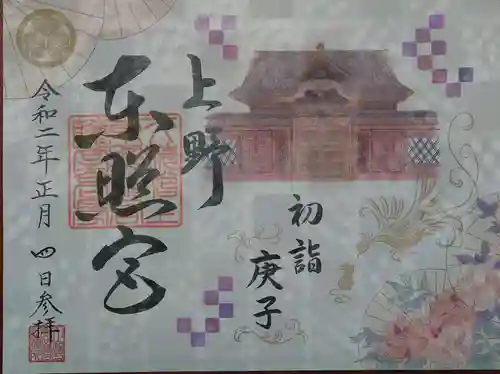 上野
東照宮
初詣
庚子
令和二年正月四日参拝